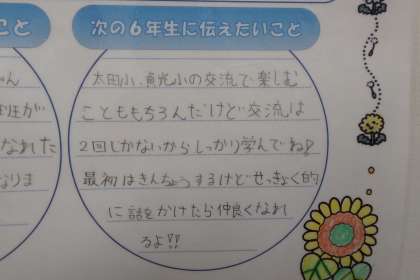 こと
次の6年生に伝えたいこと
ちゃん
太田小、魚光小の交流で楽しむ
班が
こともももちろんだけど交流は
なれた
2回しかないからしっかり学んでね♪
なりま
最初はきんちょうするけどせっきょく的
に話をかけたら仲良くなれ
るよ!!